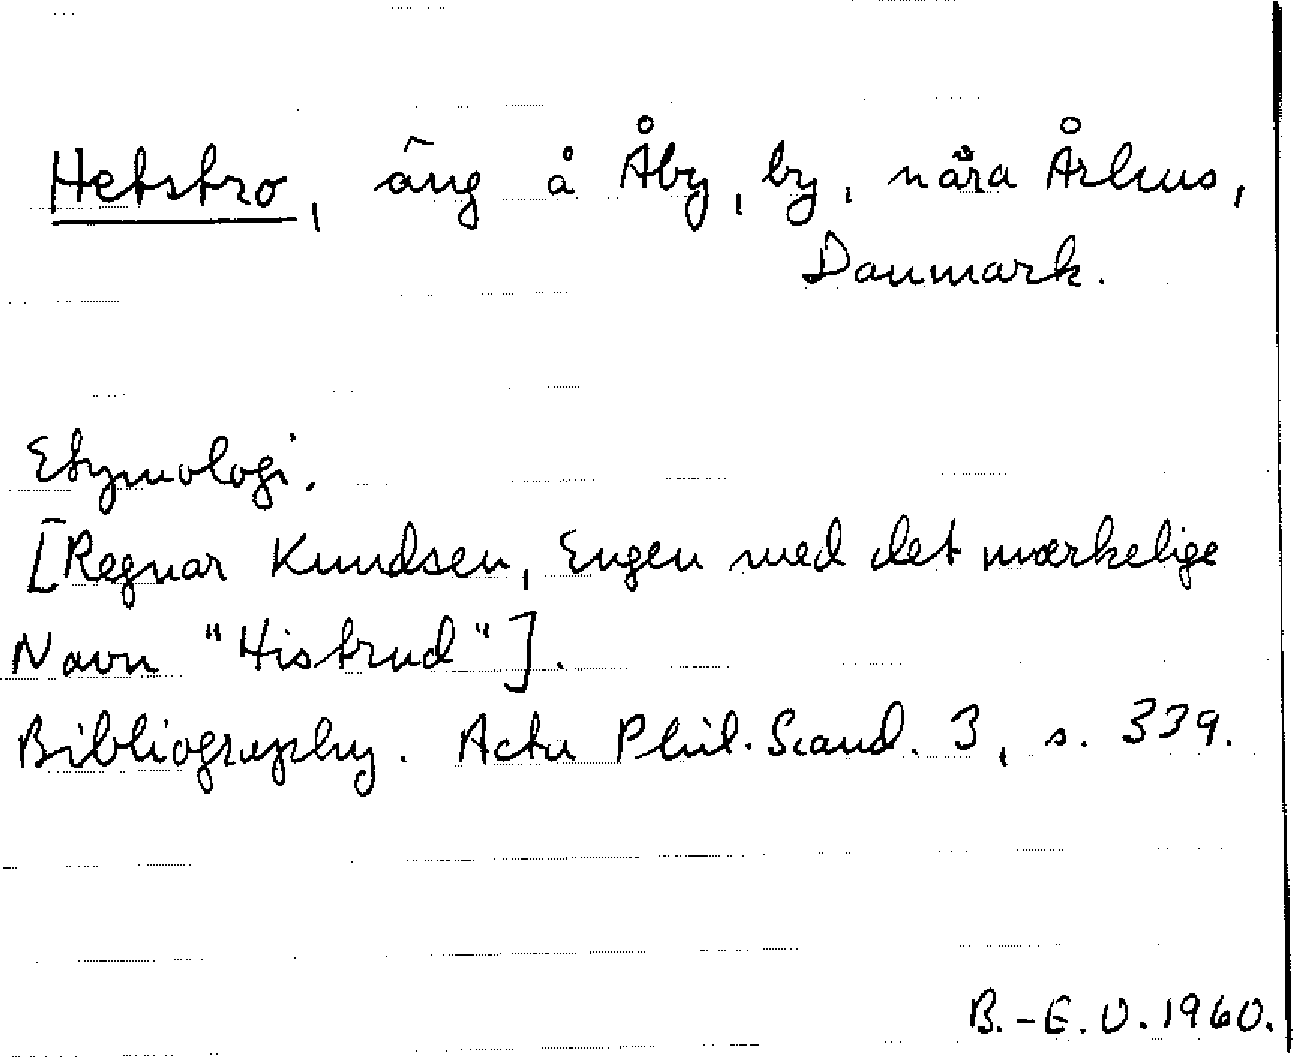 Hetstro, äng å Åby, by, nära Århus,
Danmark.
Etymologi.
[Regnar Knudsen, Engen med det mærkelige
Navn "Histrud"].
Bibliography. Acta Phil. Scand. 3, s. 339.
B.-E. O. 1960.